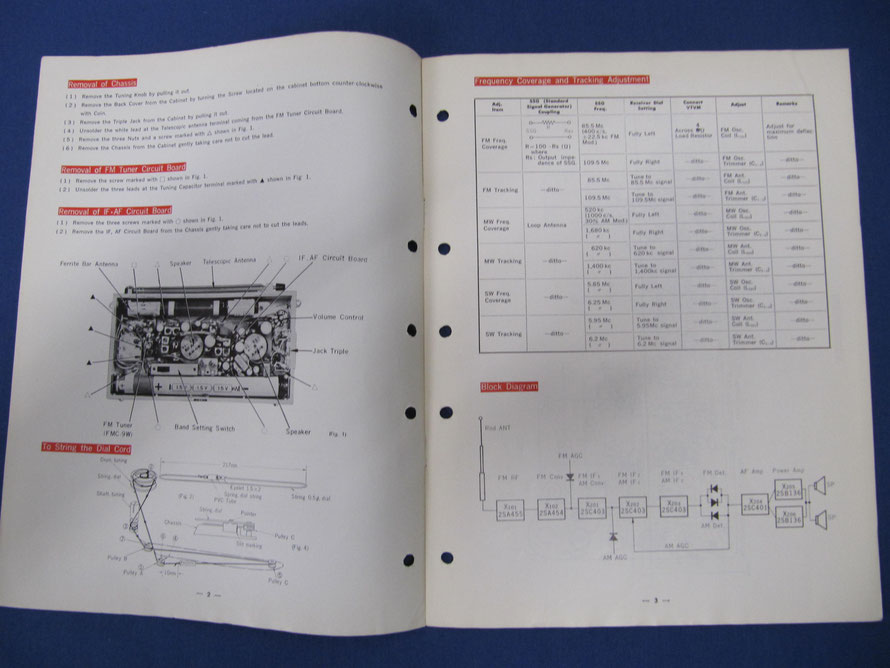 Removal of Chassis
(1) Remove the Tuning Knob by pulling it out.
(2) Remove the Back Cover from the Cabinet by turning the Screw located on the cabinet bottom counter-clockwise
with Coin.
(3) Remove the Triple Jack from the Cabinet by pulling it out.
(4) Unsolder the white lead at the Telescopic antenna terminal coming from the FM Tuner Circuit Board.
(5) Remove the three Nuts and a screw marked with △ shown in Fig. 1.
(6) Remove the Chassis from the Cabinet gently taking care not to cut the lead.
Removal of FM Tuner Circuit Board
(1) Remove the screw marked with □ shown in Fig. 1.
(2) Unsolder the three leads at the Tuning Capacitor terminal marked with ▲ shown in Fig. 1.
Removal of IF·AF Circuit Board
(1) Remove the three screws marked with ○ shown in Fig. 1.
(2) Remove the IF, AF Circuit Board from the Chassis gently taking care not to cut the leads.
Ferrite Bar Antenna
Speaker
Telescopic Antenna
IF AF Circuit Board
Volume Control
Jack Triple
FM Tuner
(FMC-9W)
Band Setting Switch
Speaker
(Fig. 1)
To String the Dial Cord
Shaft tuning
String, dial
Shaft tuning
PVC Tube
Spring dial string
String 0.5φ, dial
String dial
Pointer
Chassis
Pulley C
(Fig. 4)
Pulley B
Pulley A
Pulley C
— 2 —
Frequency Coverage and Tracking Adjustment
Adj. Item
SSG (Standard Signal Generator) Coupling
SSG Freq.
Receiver Dial Setting
Connect VTVM
Adjust
Remarks
FM Freq. Coverage
where Rs: Output impedance of SSG.
85.5 Mc (400 c/s, ±22.5 kc FM Mod.)
Fully Left
Across 4Ω Load Resistor
FM Osc. Coil
Adjust for maximum deflection
109.5 Mc
Fully Right
—ditto—
FM Osc. Trimmer
—ditto—
FM Tracking
—ditto—
85.5 Mc
Tune to 85.5 Mc signal
—ditto—
FM Ant. Coil
—ditto—
109.5 Mc
Tune to 109.5Mc signal
—ditto—
FM Ant. Trimmer
—ditto—
MW Freq. Coverage
Loop Antenna
520 kc (1000 c/s, 30% AM Mod.)
Fully Left
—ditto—
MW Osc. Coil
—ditto—
1,680 kc
Fully Right
—ditto—
MW Osc. Trimmer
—ditto—
MW Tracking
—ditto—
620 kc
Tune to 620 kc signal
—ditto—
MW Ant. Coil
—ditto—
1,400 kc
Tune to 1,400kc signal
—ditto—
MW Ant. Trimmer
—ditto—
SW Freq. Coverage
—ditto—
5.85 Mc
Fully Left
—ditto—
SW Osc. Coil
—ditto—
6.25 Mc
Fully Right
—ditto—
SW Osc. Trimmer
—ditto—
SW Tracking
—ditto—
5.95 Mc
Tune to 5.95Mc signal
—ditto—
SW Ant. Coil
—ditto—
6.2 Mc
Tune to 6.2 Mc signal
—ditto—
SW Ant. Trimmer
—ditto—
Block Diagram
Rod ANT
FM AGC
FM RF
FM Conv.
FM IF1 AM Conv.
FM IF2 AM IF1
FM IF3 AM IF2
FM Det.
AF Amp
Power Amp
X101 2SA455
X102 2SA454
X201 2SC403
X202 2SC403
X203 2SC403
X204 2SC401
X205 2SB136
X206 2SB136
SP
SP
AM Det.
AM AGC
AM AGC
— 3 —